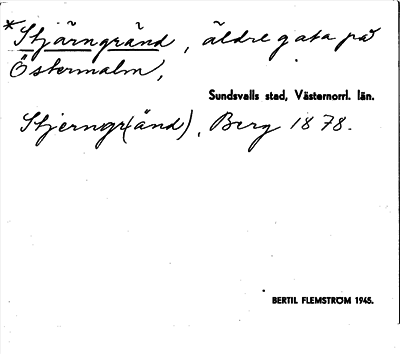 *Stjärngränd, äldre gata på
Östermalm,
Sundsvalls stad, Västernorrl. län.
Stjerngr(änd), Berg 1878.
BERTIL FLEMSTRÖM 1945.